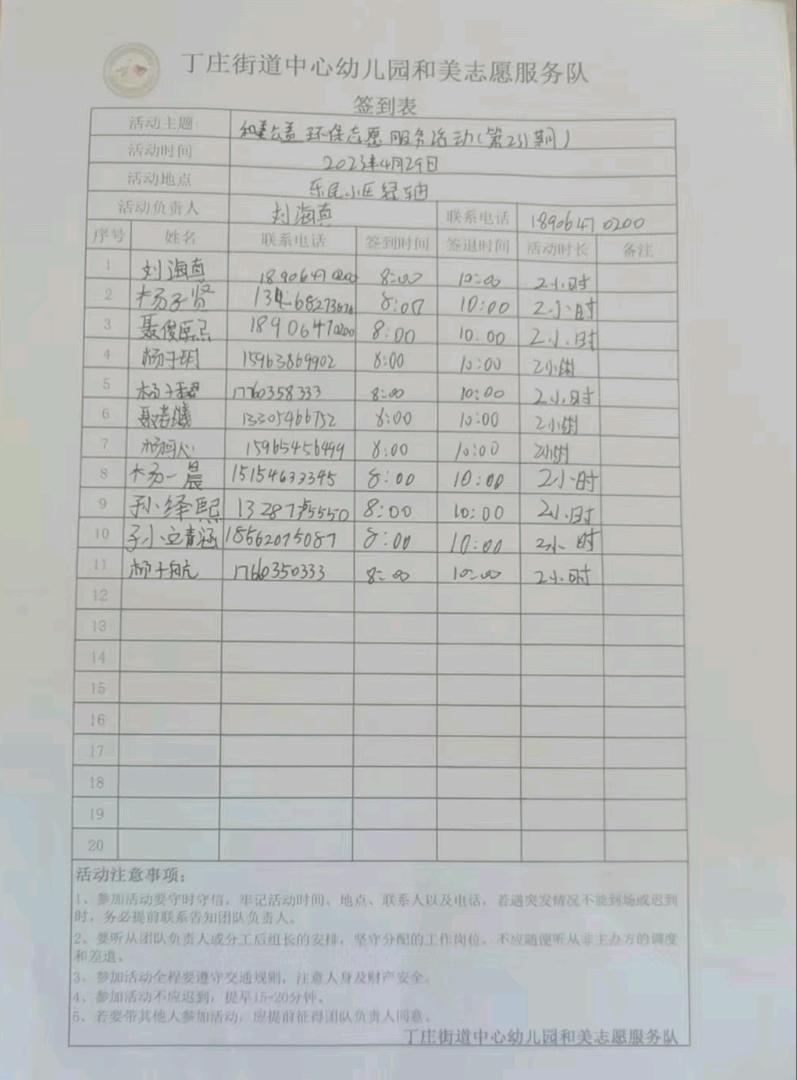 丁庄街道中心幼儿园和美志愿服务队
签到表
活动主题 和美公益 环保志愿服务活动(第231期)
活动时间 2023年4月29日
活动地点 乐民小区
活动负责人 刘海真 联系电话 18906470200
序号 姓名 联系电话 签到时间 签退时间 活动时长 备注
1 刘海真 18906470200 8:00 10:00 2小时
2 杨子贤 8:00 10:00 2小时
3 18906470200 8:00 10:00 2小时
4 杨子玥 15963869902 8:00 10:00 2小时
5 1760358333 8:00 10:00 2小时
6 13305466752 8:00 10:00 2小时
7 15965456499 8:00 10:00 2小时
8 杨一晨 15154633345 8:00 10:00 2小时
9 孙绎熙 8:00 10:00 2小时
10 18562075087 8:00 10:00 2小时
11 杨子航 1760350333 8:00 10:00 2小时
12
13
14
15
16
17
18
19
20
活动注意事项:
1、参加活动要守时守信,牢记活动时间、地点、联系人以及电话,若遇突发情况不能到场或迟到
时,务必提前联系告知团队负责人。
2、要听从团队负责人或分工后组长的安排,坚守分配的工作岗位。不应随便听从非主办方的调度
和差遣。
3、参加活动全程要遵守交通规则,注意人身及财产安全。
4、参加活动不应迟到,提早15-20分钟。
5、若要带其他人参加活动,应提前征得团队负责人同意。
丁庄街道中心幼儿园和美志愿服务队